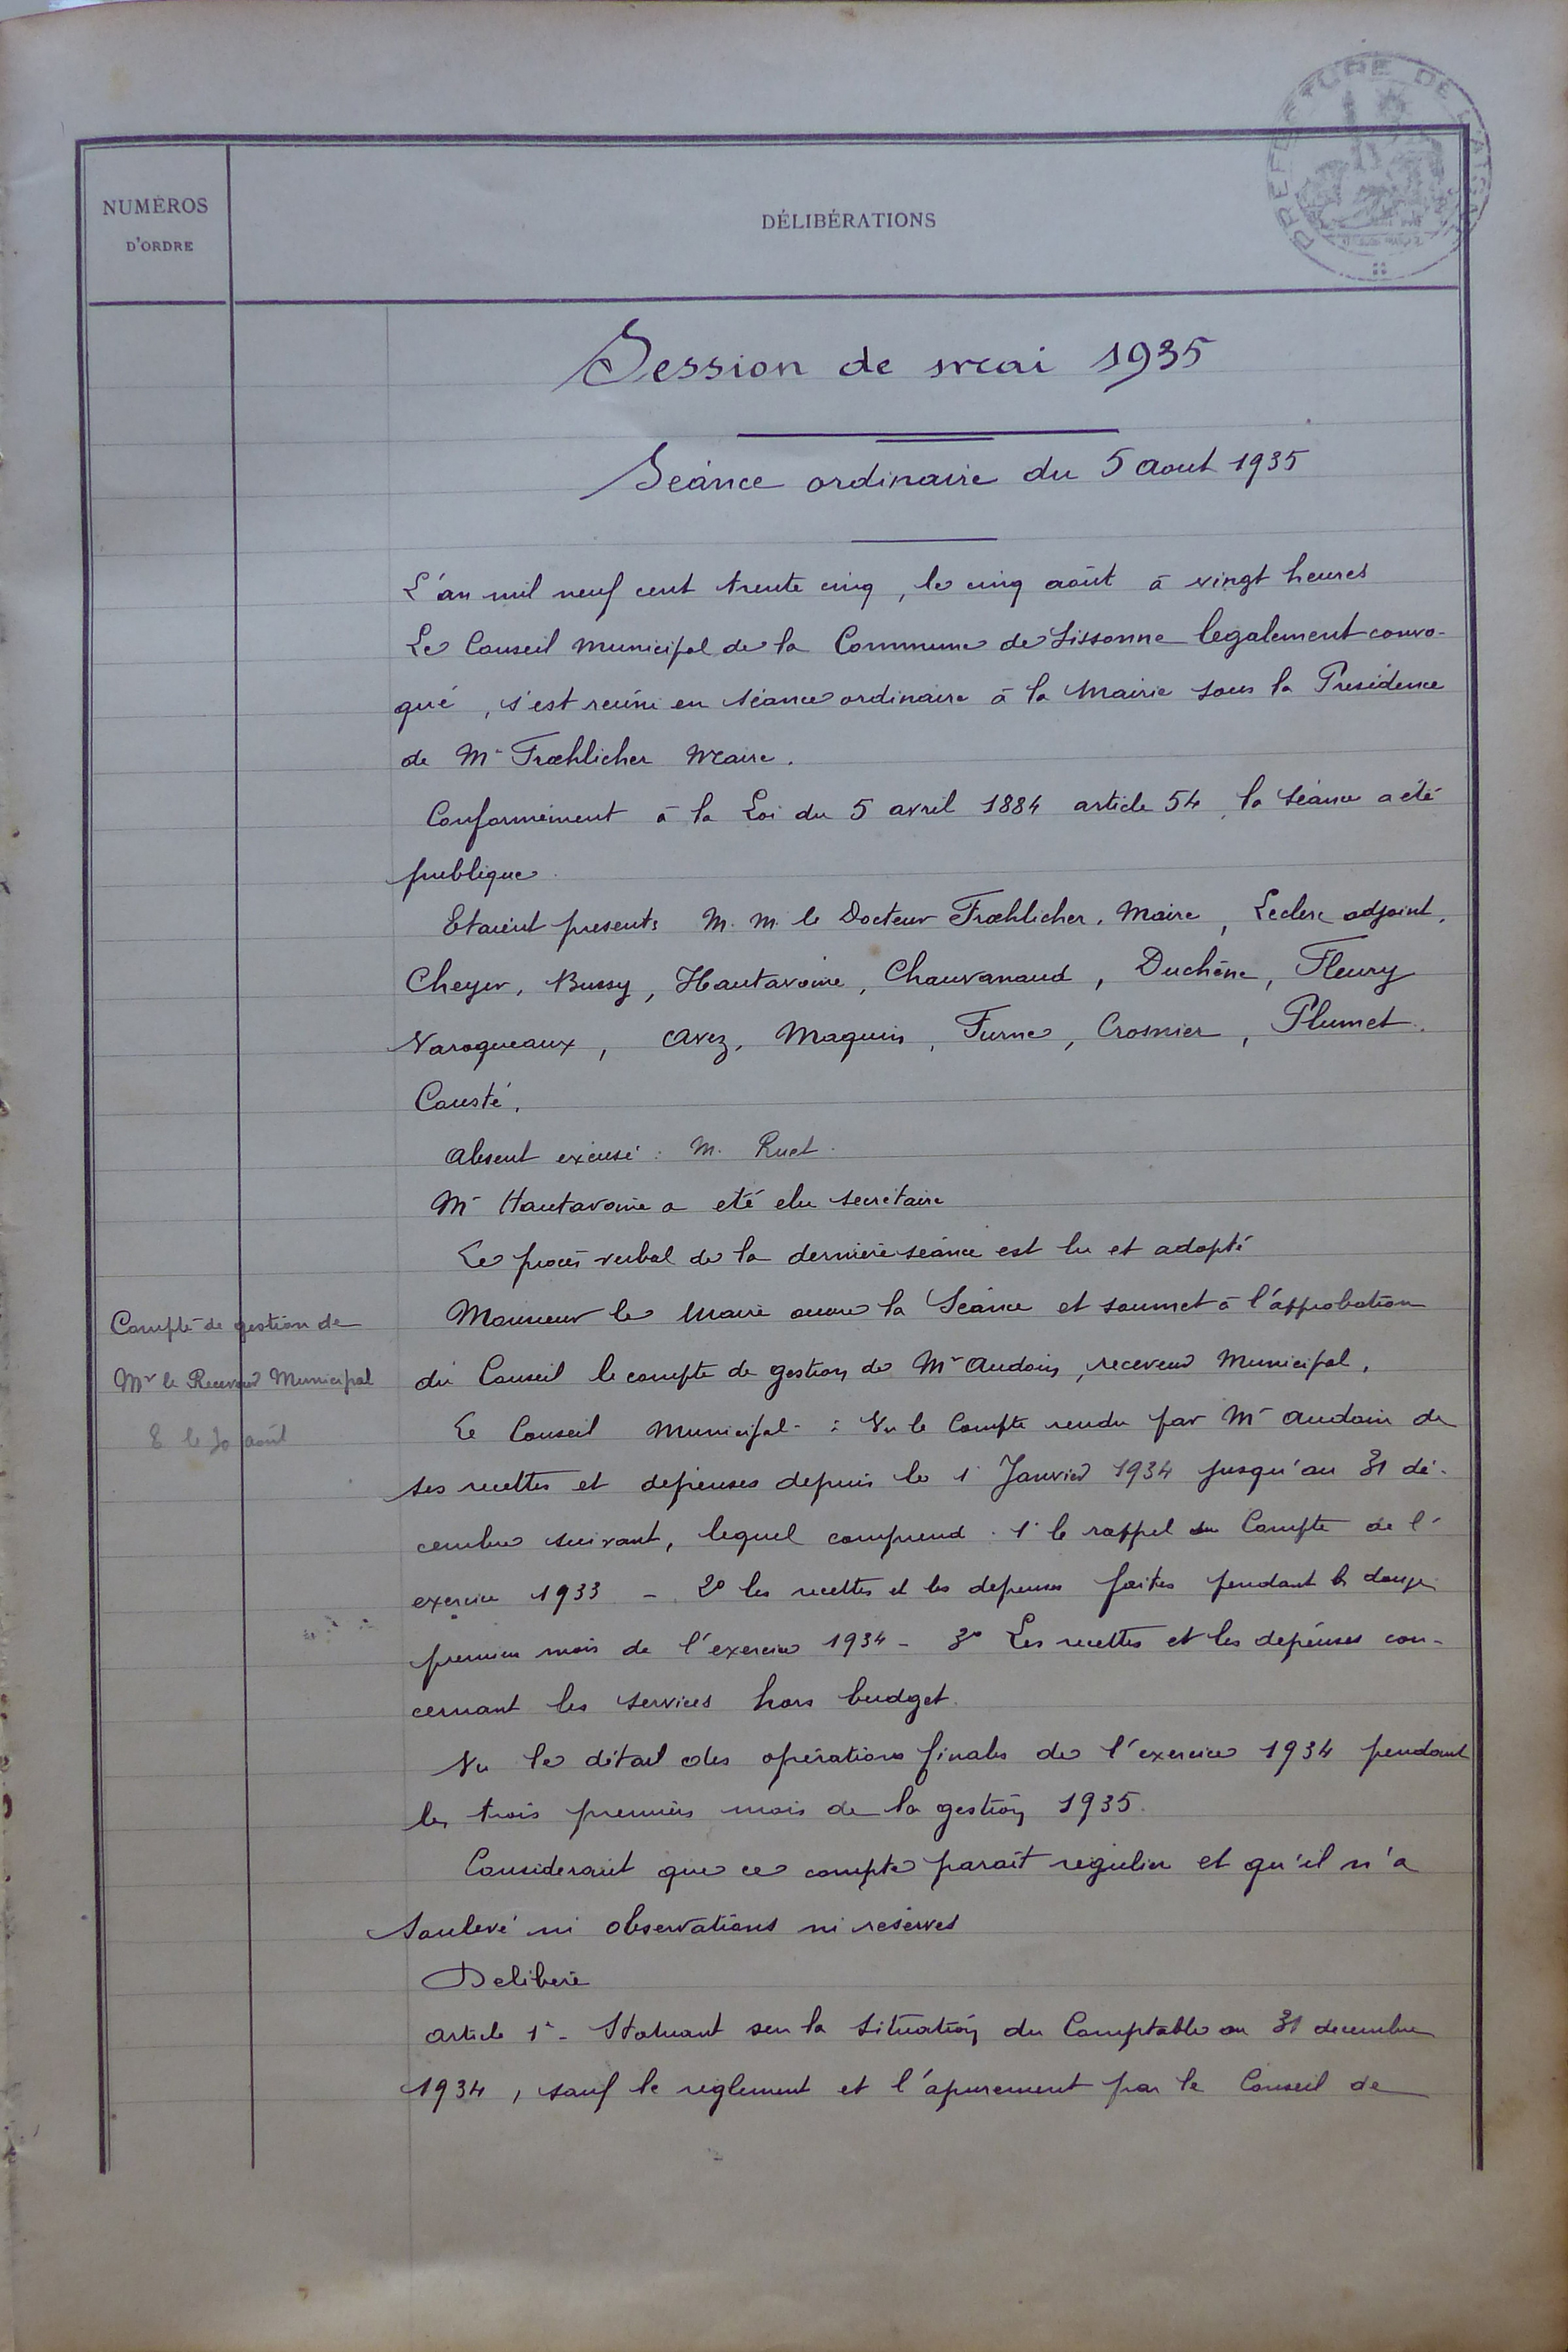 PREFECTURE DE L'AISNE
NUMÉROS
D'ORDRE
DÉLIBÉRATIONS
Session de mai 1935
Séance ordinaire du 5 aout 1935
L'an mil neuf cent trente cinq, le cinq août à vingt heures
Le Conseil Municipal de la Commune de Sissonne legalement convo-
qué, s'est reuni en séance ordinaire à la Mairie sous la Presidence
de Mr Frœhlicher Maire.
Conformément à la Loi du 5 avril 1884 article 54, la séance a été
publique.
Etaient presents M. M. le Docteur Frœhlicher, Maire, Leclerc adjoint,
Cheyer, Bussy, Hautavoine, Chauvanaud, Duchêne, Fleury
Varoqueaux, Avez, Maquin, Furne, Crosnier, Plumet.
Cousté.
Absent excusé : M. Ruet.
Mr Hautavoine a eté elu secretaire
Le procès verbal de la derniere séance est lu et adopté
Compte de gestion de
Mr le Receveur Municipal
E le 30 août
Monsieur le Maire ouvre la Séance et soumet à l'approbation
du Conseil le compte de gestion de Mr Audoin, receveur Municipal.
Le Conseil Municipal : Vu le Compte rendu par Mr Audoin de
ses recettes et depenses depuis le 1r Janvier 1934 jusqu'au 31 dé-
cembre suivant, lequel comprend . 1r le rappel du Compte de l'
exercice 1933 - 2º les recettes et les depenses faites pendant les douze
premiers mois de l'exercice 1934 - 3º Les recettes et les depenses con-
cernant les services hors budget.
Vu le détail des opérations finales de l'exercice 1934 pendant
les trois premiers mois de la gestion 1935.
Considerant que ce compte parait regulier et qu'il n'a
soulevé ni observations ni reserves
Delibere
Article 1r - Statuant sur la situation du Comptable au 31 decembre
1934, sauf le reglement et l'apurement par le Conseil de